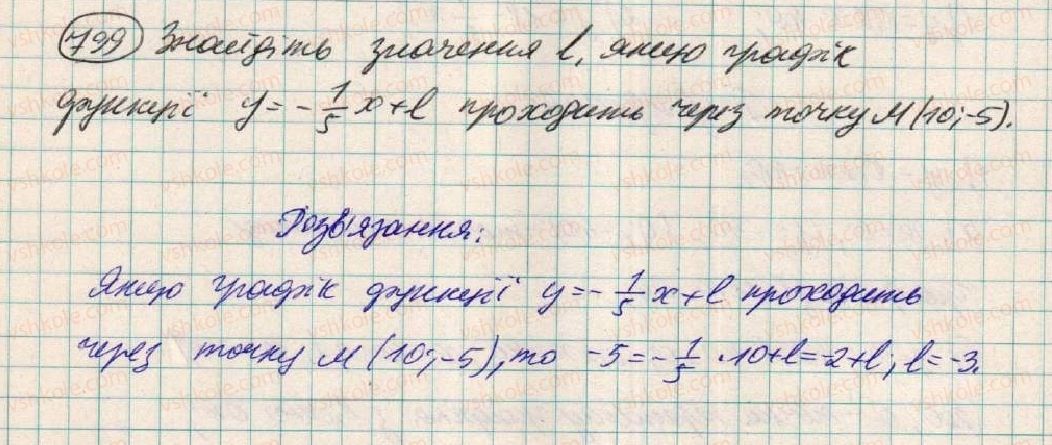 799 Знайдіть значення l, якщо графік
функції y = - 1/5 x + l проходить через точку M(10; -5).
Розв'язання:
Якщо графік функції y = - 1/5 x + l проходить
через точку M(10; -5), то -5 = - 1/5 · 10 + l = -2 + l; l = -3.